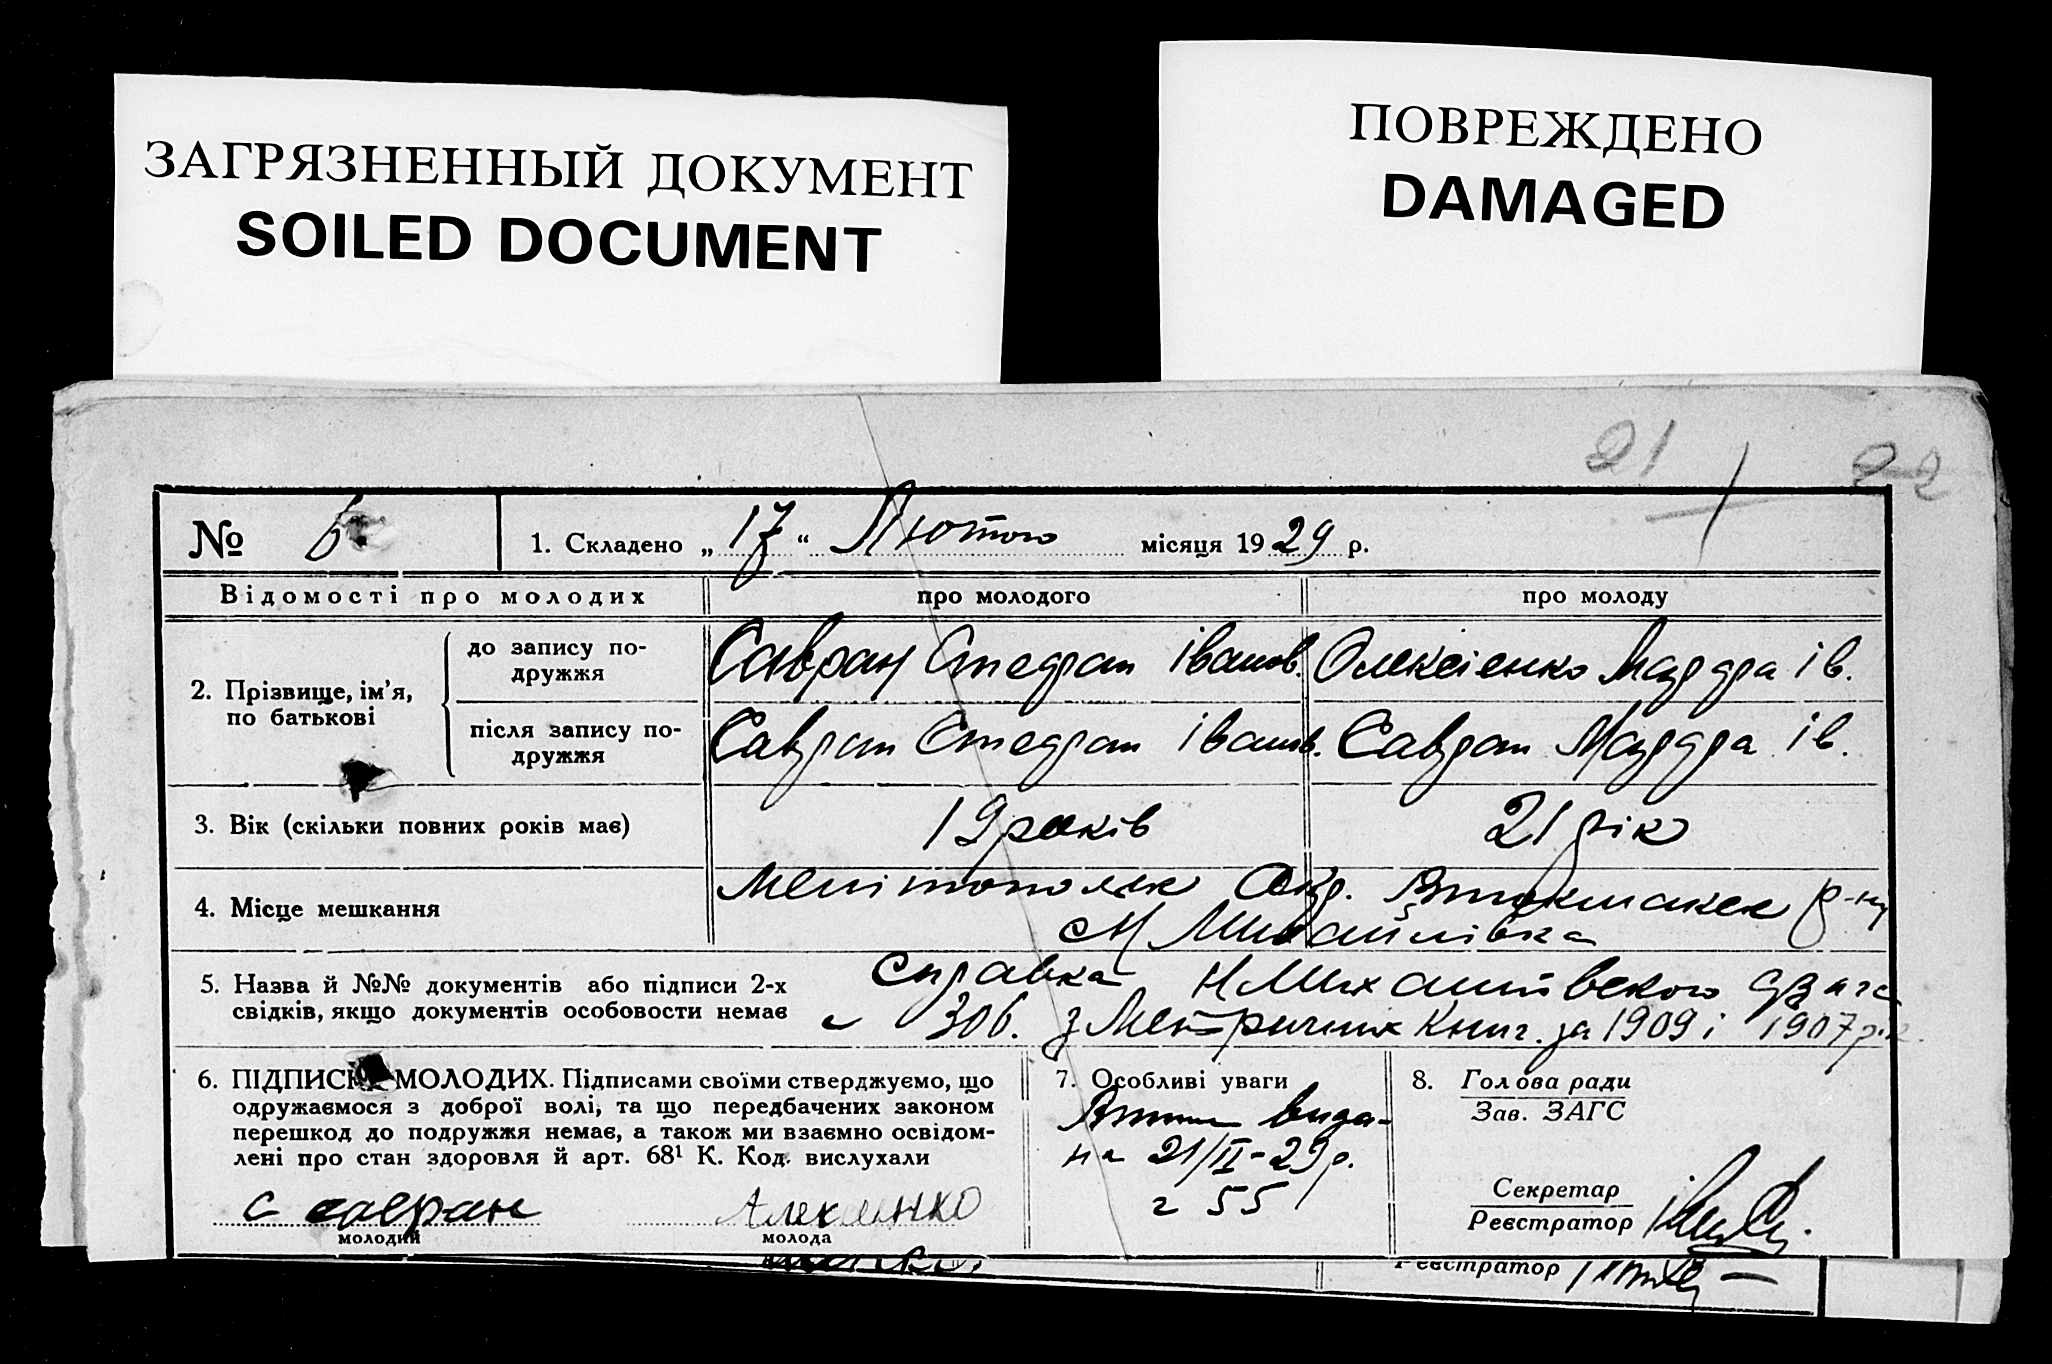 ЗАГРЯЗНЕННЫЙ ДОКУМЕНТ
SOILED DOCUMENT
ПОВРЕЖДЕНО
DAMAGED
21
22
№ 6
1. Складено „ 17 “ Лютого місяця 1929 р.
Відомості про молодих
про молодого
про молоду
2. Прізвище, ім’я, по батькові
до запису подружжя
Савран Стефан Іванов.
Олексієнко Марфа Ів.
після запису подружжя
Савран Стефан Іванов.
Савран Марфа Ів.
3. Вік (скільки повних років має)
19 років
21 рік
4. Місце мешкання
Мелітопольск Окр. р-ну
Михайлівка
5. Назва й №№ документів або підписи 2-х
свідків, якщо документів особовости немає
Справка Н Михайлівского
306. з Метричних Книг. за 1909 і 1907 р.
6. ПІДПИСКА МОЛОДИХ. Підписами своїми стверджуємо, що
одружаємося з доброї волі, та що передбачених законом
перешкод до подружжя немає, а також ми взаємно освідом-
лені про стан здоровля й арт. 68¹ К. Код. вислухали
С савран
молодий
Алексиенко
молода
7. Особливі уваги
вида-
на 21/II-29р.
55
8. Голова ради
Зав. ЗАГС
Секретар
Реєстратор
Реєстратор